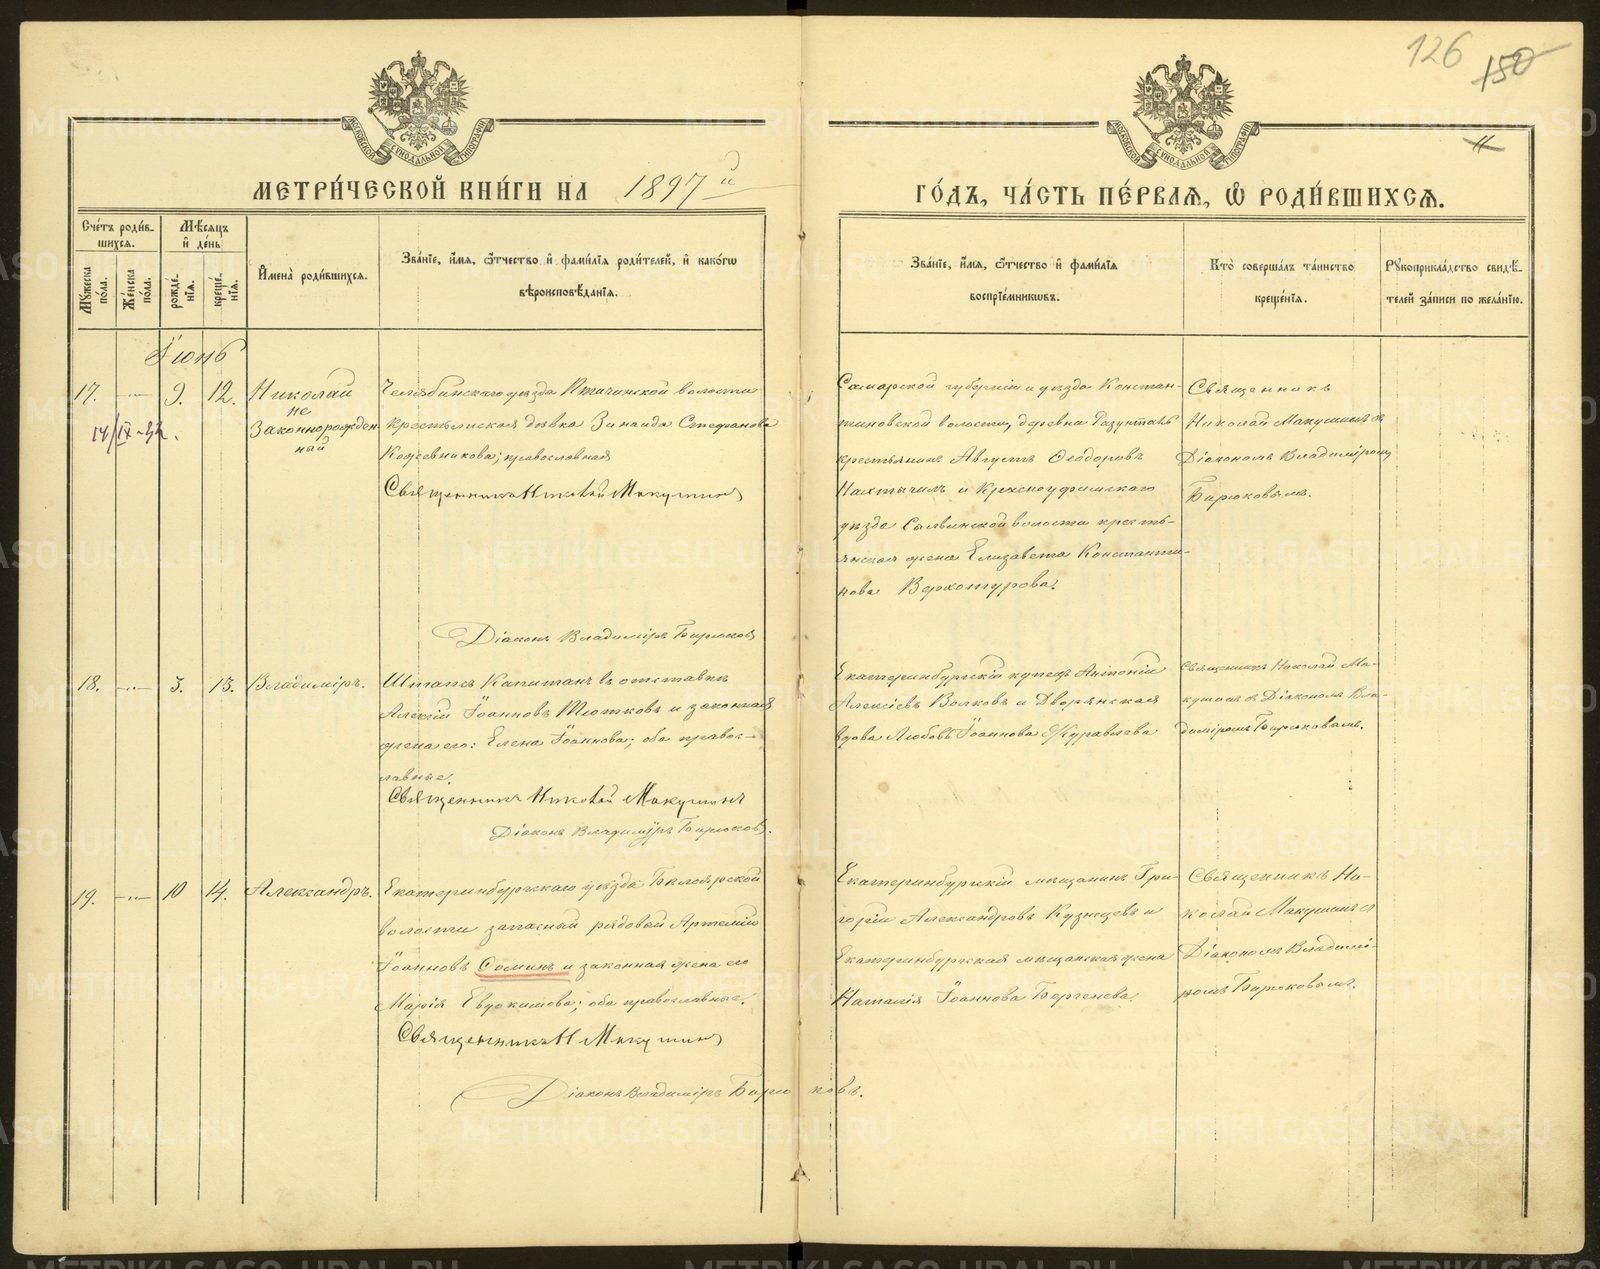 126 150
МОСКОВСКОЙ СѴНОДАЛЬНОЙ ТИПОГРАФІИ
МОСКОВСКОЙ СѴНОДАЛЬНОЙ ТИПОГРАФІИ
МЕТРИ́ЧЕСКОЙ КНИ́ГИ НА 1897й
ГО́ДЪ, ЧА́СТЬ ПЕ́РВАЯ, Ѽ РОДИ́ВШИХСЯ.
Сче́тъ роди́в-
шихся.
Мѣ́сяцъ
и҆ де́нь
Мꙋ́жеска
по́ла.
Же́нска
по́ла.
рожде́-
нїѧ.
креще́-
нїѧ.
И҆мена̀ роди́вшихся.
Зва́нїе, и҆́мѧ, ѻ҆́тчество и҆ фами́лїѧ роди́телей, и҆ како́гѡ
вѣроисповѣ́данїѧ.
Зва́нїе, и҆́мѧ, ѻ҆́тчество и҆ фами́лїѧ
воспрїе́мникѡвъ.
Кто̀ соверша́лъ та́инство
креще́нїѧ.
Рꙋкоприкла́дство свидѣ́-
телей за́писи по жела́нїю.
Іюнь
17. —„— 9. 12. Николай
не
Законнорожден
ный
14/IX-32.
Челябинскаго уѣзда Птичинской волости
крестьянская дѣвка Зинаида Стефанова
Кожевникова; православная
Священникъ Николай Макушинъ
Діаконъ Владиміръ Бирюковъ
Самарской губерніи и уѣзда Констан-
тиновской волости, деревни
крестьянинъ Августъ Ѳеодоровъ
и Красноуфимскаго
уѣзда Сылвинской волости кресть-
янская жена Елизавета Константи-
нова Верхотурова.
Священникъ
Николай Макушинъ съ
Діакономъ Владиміромъ
Бирюковымъ.
18. —„— 3. 13. Владиміръ.
Штапсъ Капитанъ въ отставкѣ
Алексій Іоанновъ Тютковъ и законная
жена его: Елена Іоаннова; оба правос-
лавные.
Священникъ Николай Макушинъ
Діаконъ Владиміръ Бирюковъ.
Екатеринбургскій купецъ Антоній
Алексіевъ Волковъ и Дворянская
вдова Любовь Іоаннова Журавлева
Священникъ Николай Ма-
кушинъ съ Діакономъ Вла-
диміромъ Бирюковымъ.
19. —„— 10 14. Александръ.
Екатеринбургскаго уѣзда Бѣлоярской
волости запасный рядовой Артемій
Іоанновъ Соминъ и законная жена его
Марія Евдокимова; оба православные.
Священникъ Н Макушинъ
Діаконъ Владиміръ Бирюковъ.
Екатеринбургскій мѣщанинъ Гри-
горій Александровъ Кузнецовъ и
Екатеринбургская мѣщанская жена
Наталія Іоаннова Бергенева.
Священникъ Ни-
колай Макушинъ съ
Діакономъ Владимі-
ромъ Бирюковымъ.
METRIKI.GASO-URAL.RU